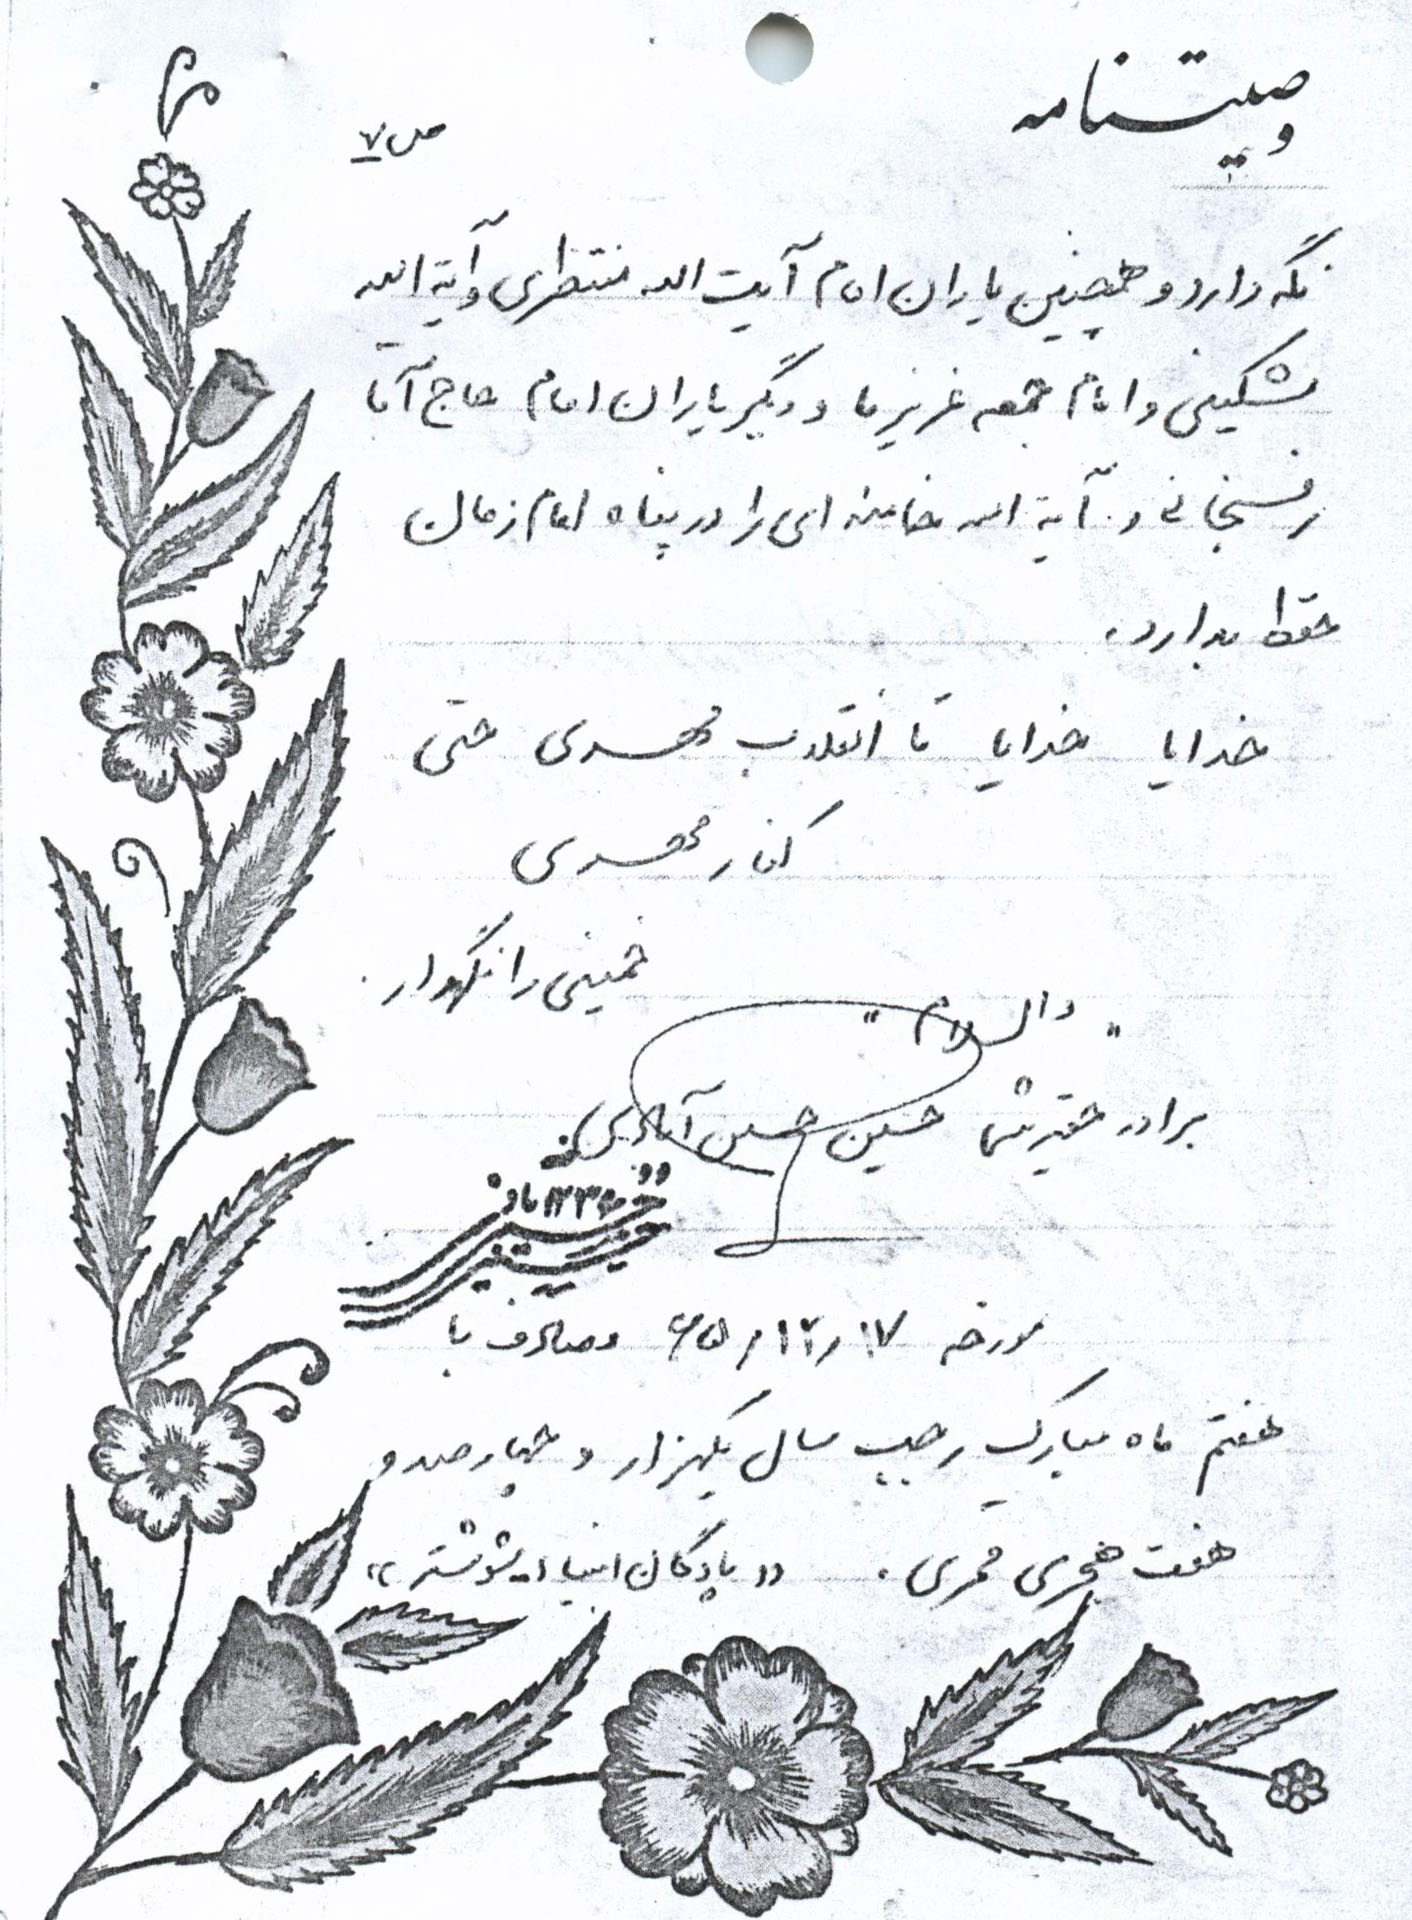 وصیتنامه
ص ۷
نگه دارد و همچنین یاران امام آیت الله منتظری و آیة الله
مشکینی و امام جمعه عزیز ما و دیگر یاران امام حاج آقا
رفسنجانی و آیة الله خامنه ای را در پناه امام زمان
حفظ بدارد.
خدایا خدایا تا انقلاب مهدی حتی
کنار مهدی
خمینی را نگهدار.
" والسلام "
برادر حقیر شما حسین حسین آبادی
مورخه ۱۷/۱۲/۶۵ مصادف با
هفتم ماه مبارک رجب سال یکهزار و چهارصد و
هفت هجری قمری. "پادگان انبیاء شوشتر"